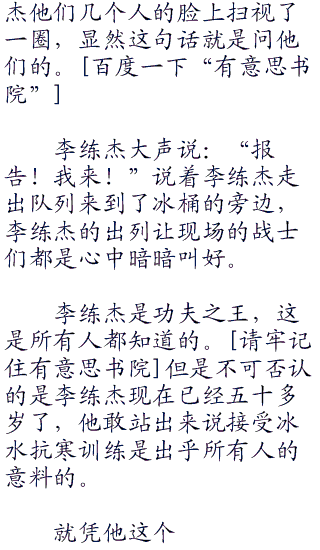 杰他们几个人的脸上扫视了
一圈，显然这句话就是问他
们的。[百度一下“有意思书
院”]
李练杰大声说：“报
告！我来！”说着李练杰走
出队列来到了冰桶的旁边，
李练杰的出列让现场的战士
们都是心中暗暗叫好。
李练杰是功夫之王，这
是所有人都知道的。[请牢记
住有意思书院]但是不可否认
的是李练杰现在已经五十多
岁了，他敢站出来说接受冰
水抗寒训练是出乎所有人的
意料的。
就凭他这个